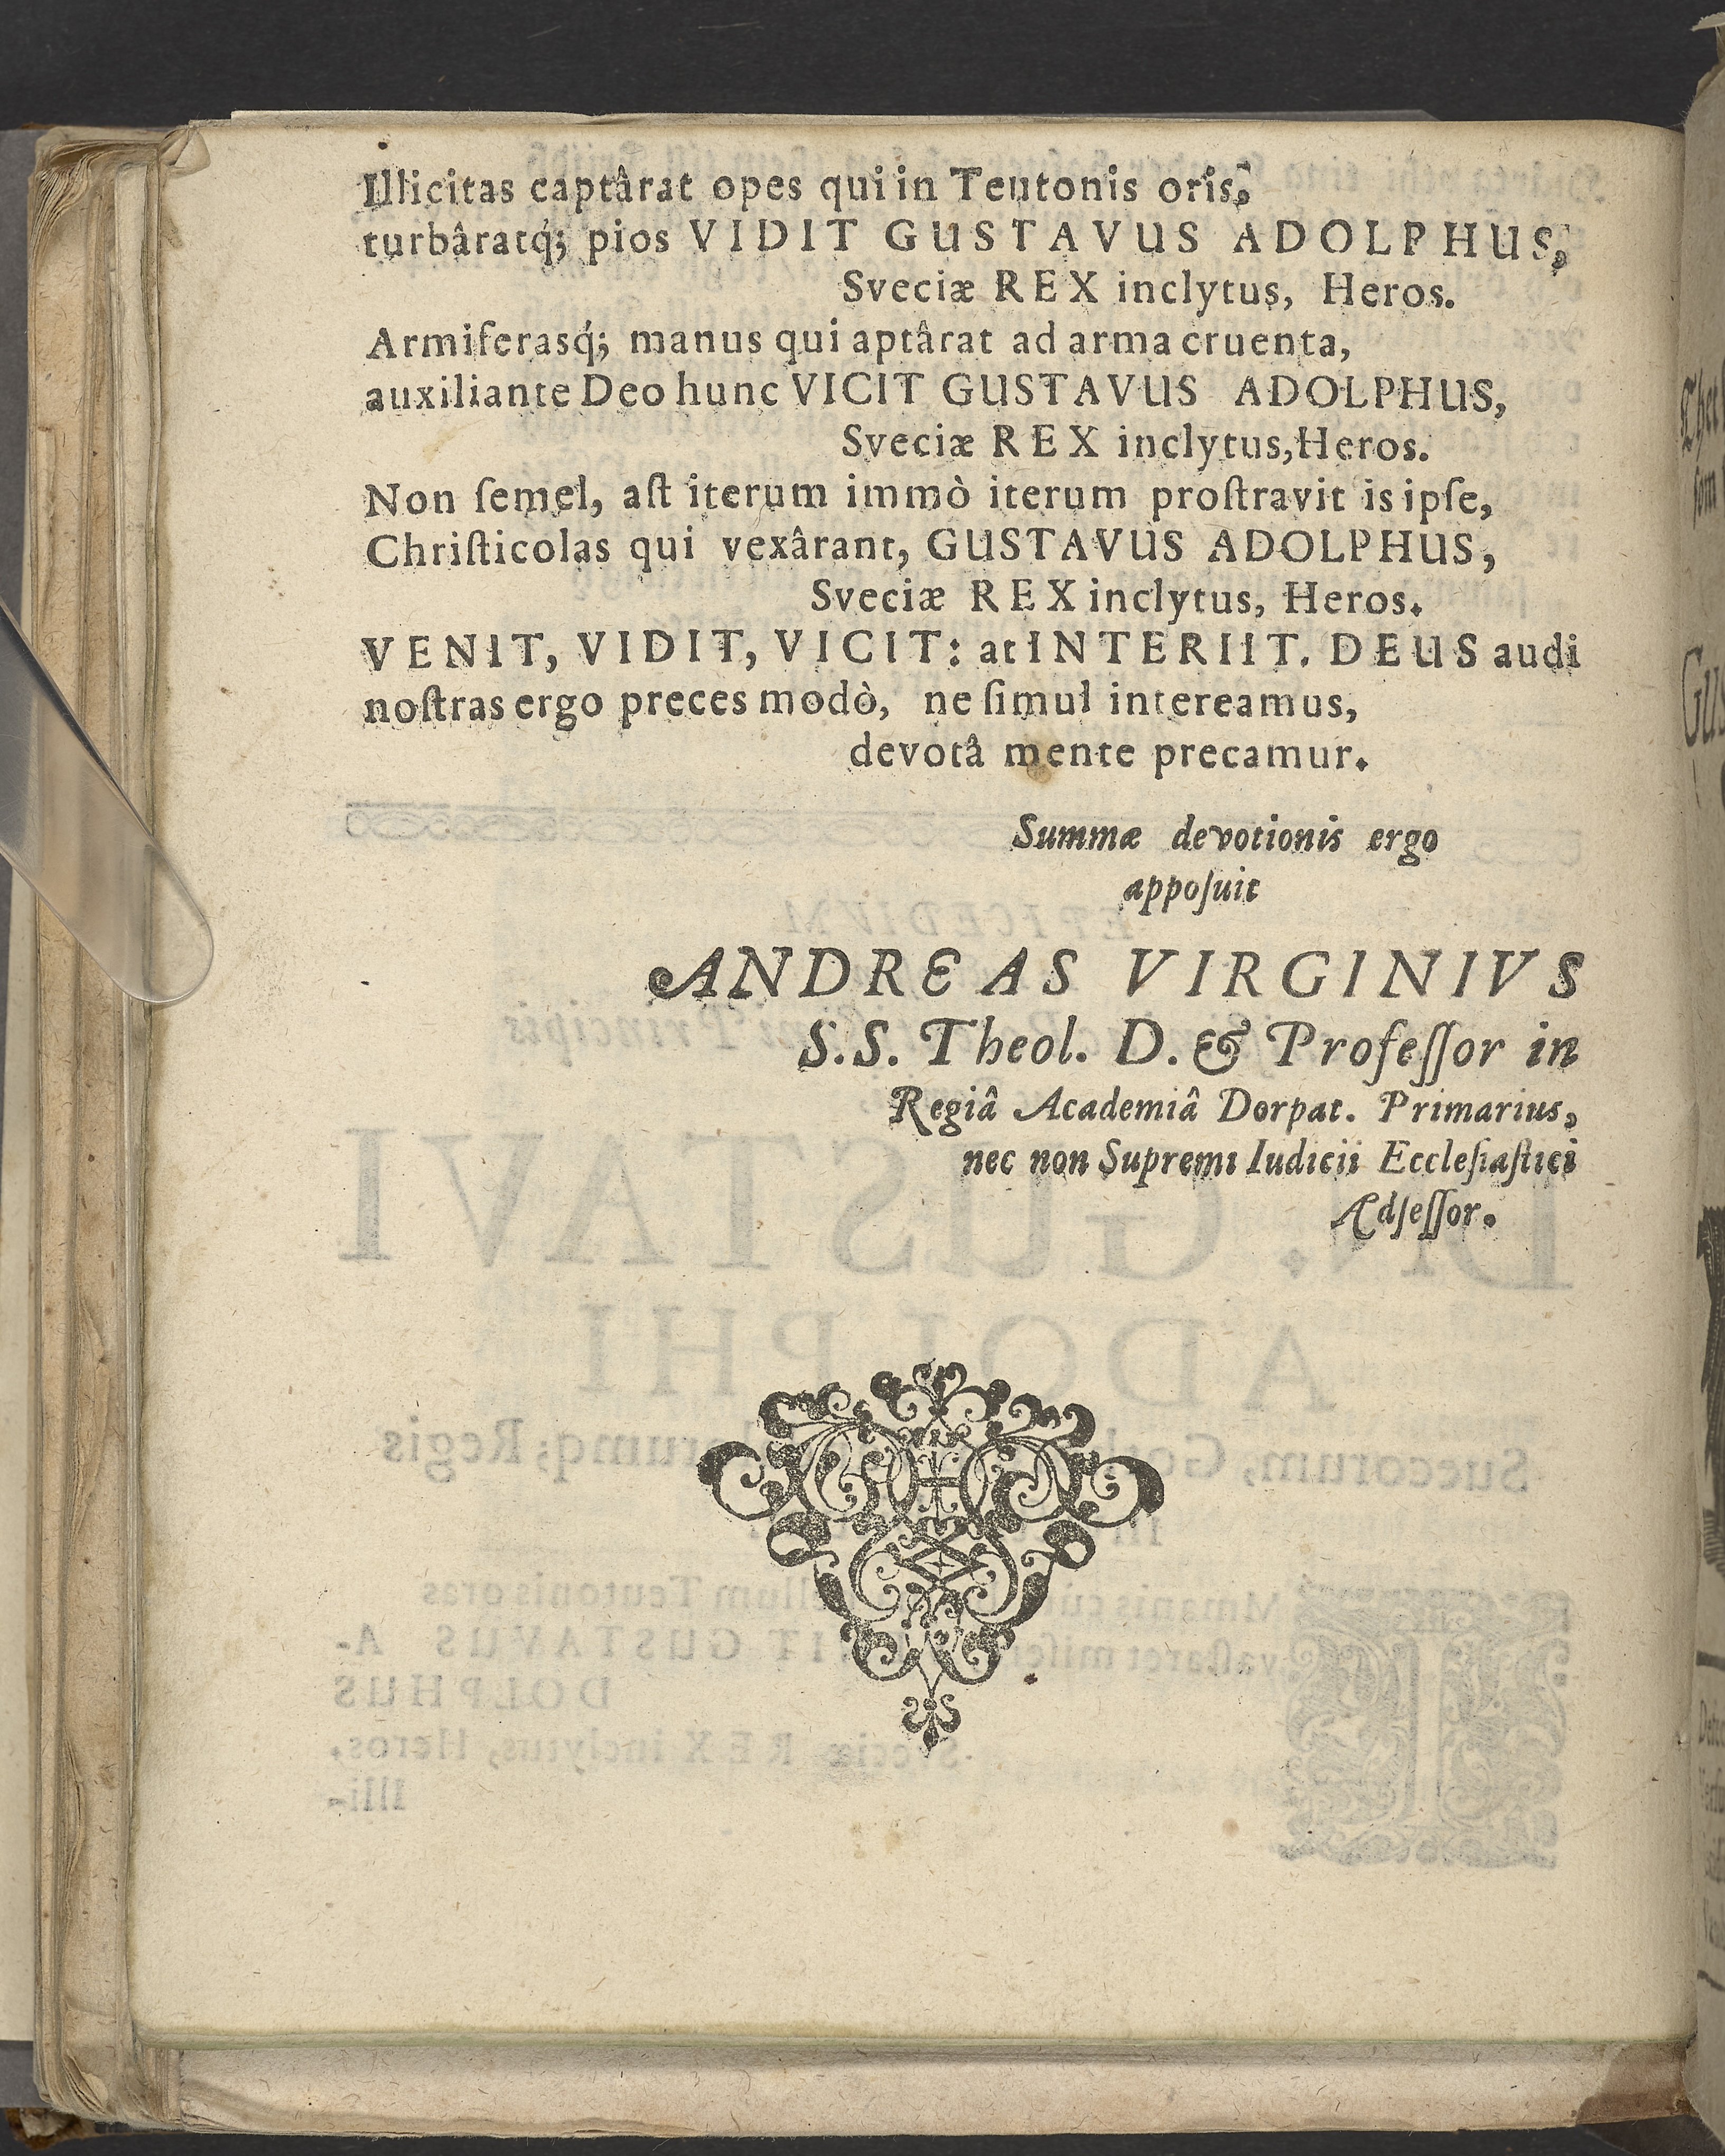 Illicitas captârat opes qui in Teutonis oris,
turbâratq́; pios VIDIT GUSTAVUS ADOLPHUS,
Sveciæ REX inclytus, Heros.
Armiferasq́; manus qui aptârat ad arma cruenta,
auxiliante Deo hunc VICIT GUSTAVUS ADOLPHUS,
Sveciæ REX inclytus, Heros.
Non ſemel, aſt iterum immò iterum proſtravit is ipſe,
Chriſticolas qui vexârant, GUSTAVUS ADOLPHUS,
Sveciæ REX inclytus, Heros.
VENIT, VIDIT, VICIT: at INTERIIT. DEUS audi
noſtras ergo preces modò, ne ſimul intereamus,
devotâ mente precamur.
Summæ devotionis ergo
appoſuit
ANDREAS VIRGINIVS
S.S. Theol. D. & Profeſſor in
Regiâ Academiâ Dorpat. Primarius,
nec non Supremi Iudicii Eccleſiaſtici
Adſeſſor.